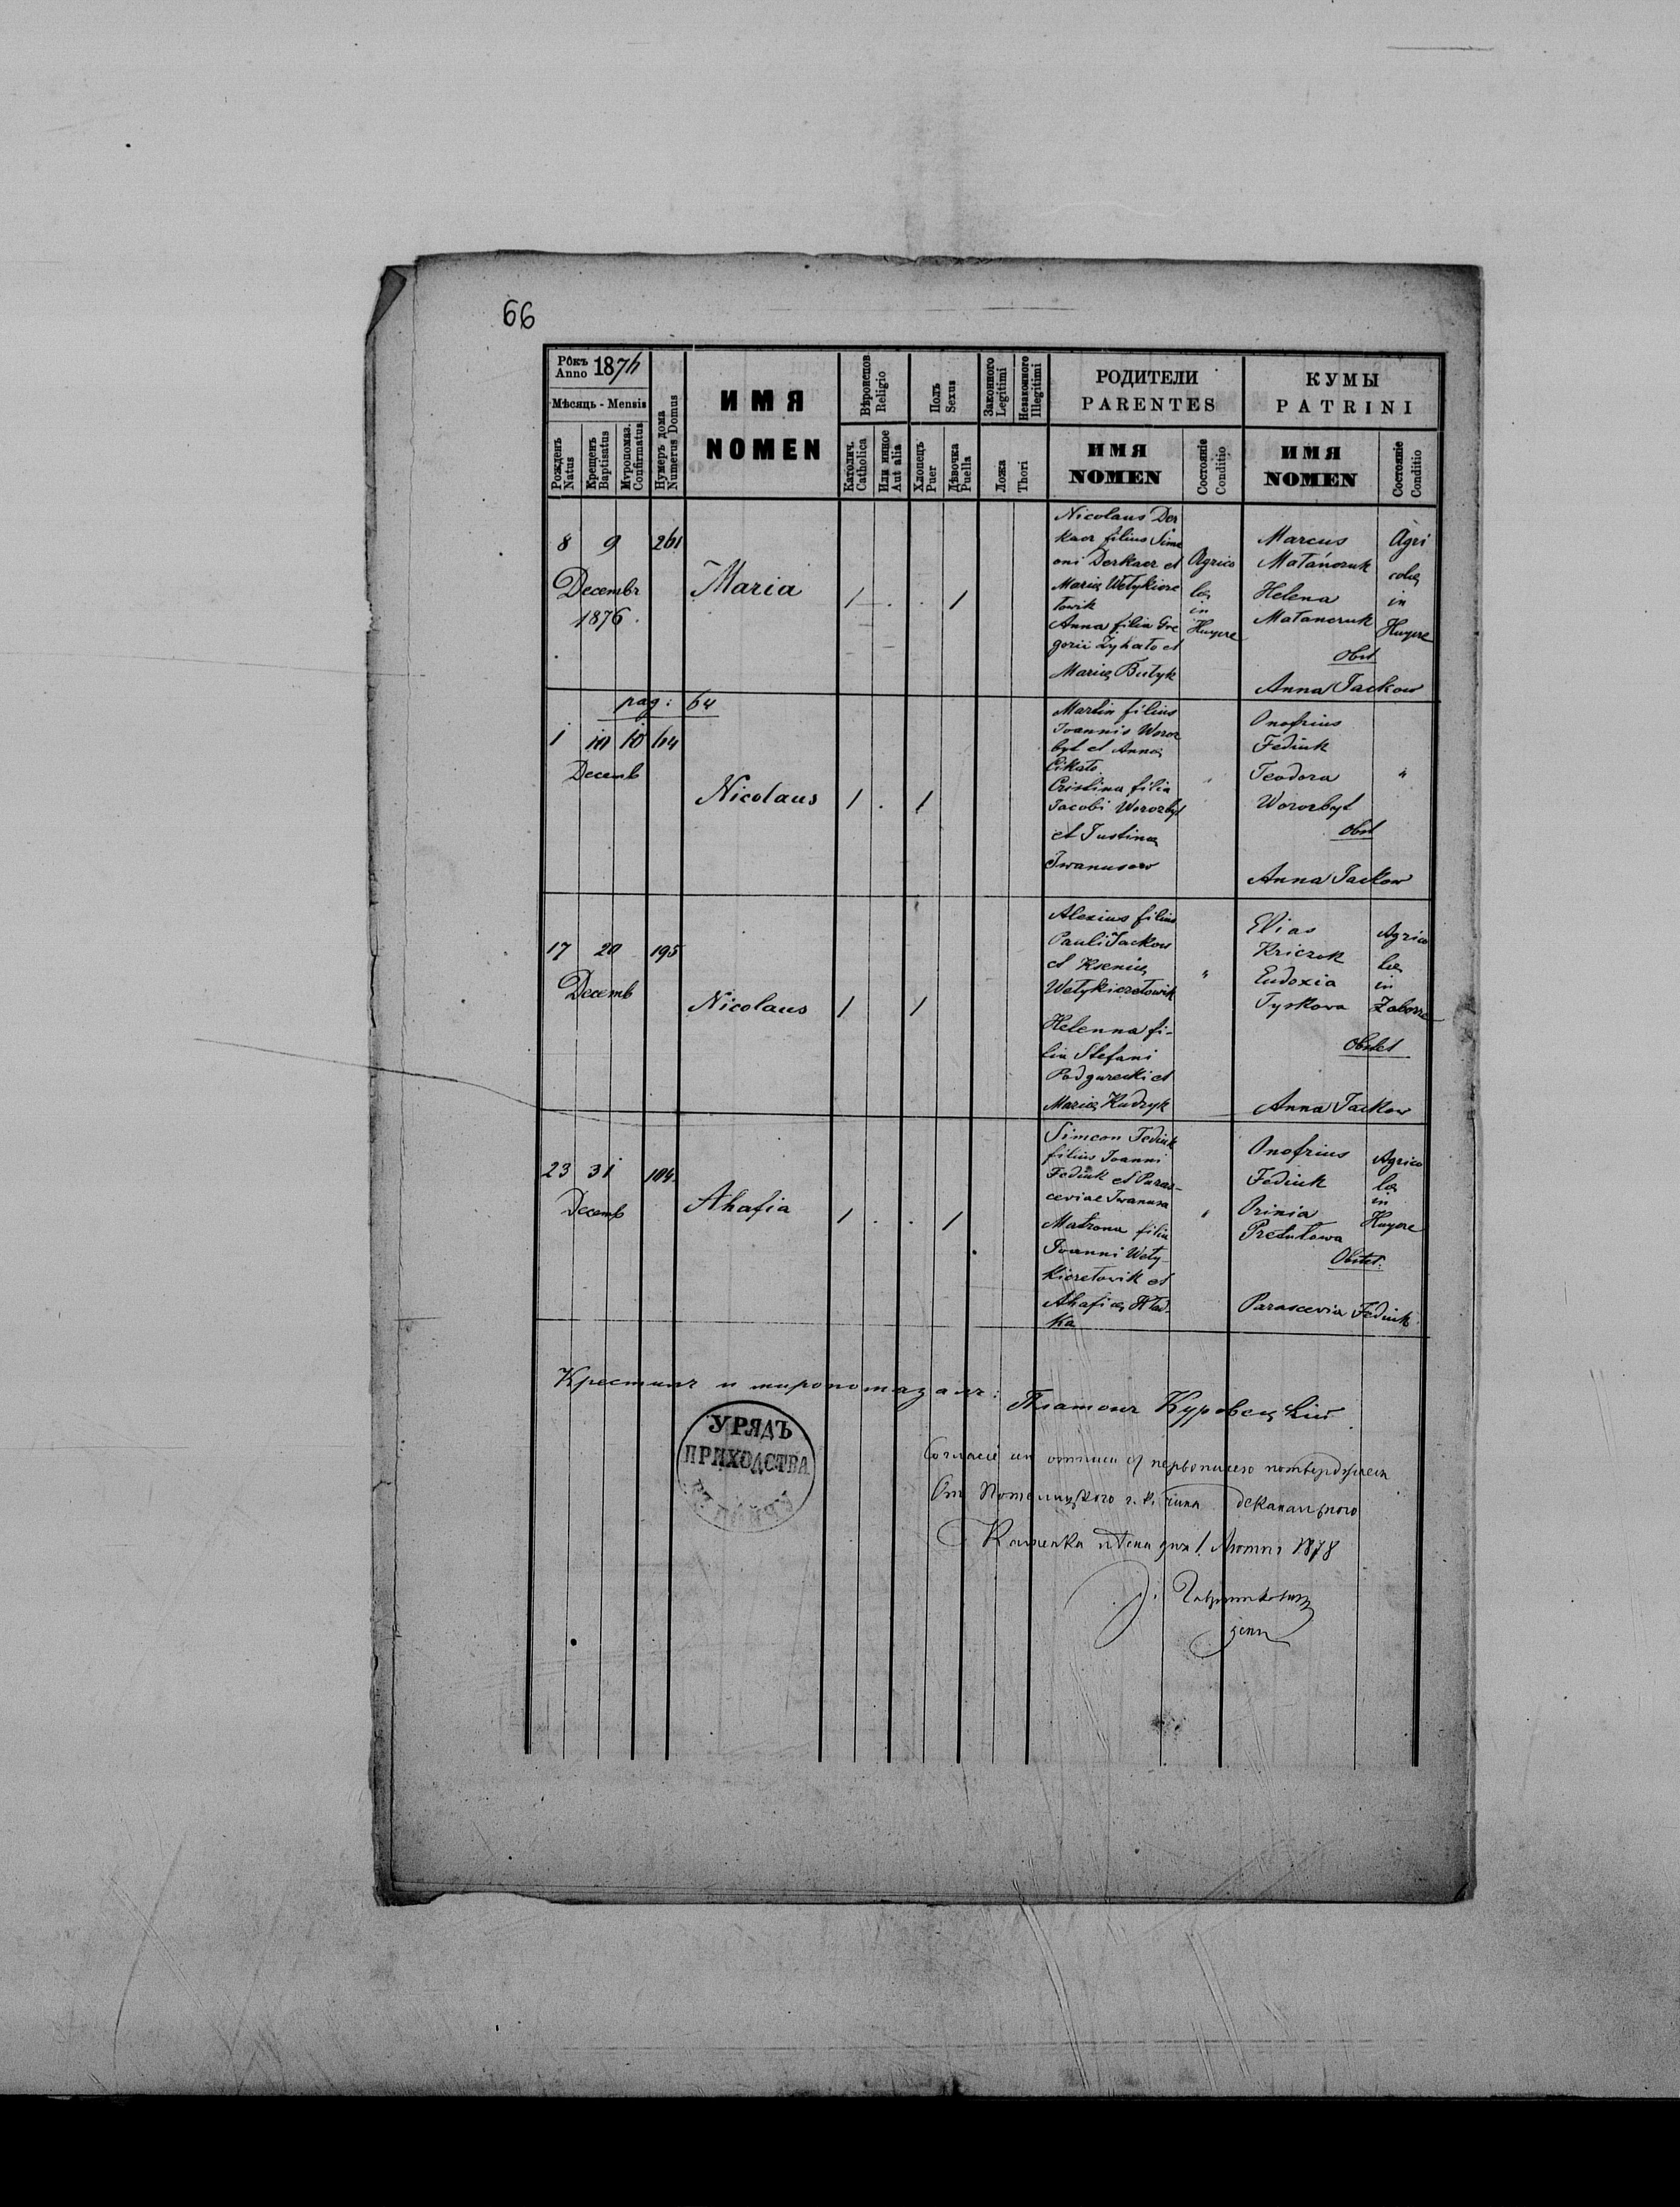 66
Рôкъ
Anno 1876
Мѣсяць - Mensis
Рожденъ
Natus
Крещенъ
Baptisatus
Мѵропомаз.
Confirmatus
Нумеръ дома
Numerus Domus
ИМЯ
NOMEN
Вѣроисповѣд.
Religio
Католич.
Catholica
Или инное
Aut alia
Полъ
Sexus
Хлопецъ
Puer
Дѣвочка
Puella
Законного
Legitimi
Незаконного
Illegitimi
Ложа
Thori
РОДИТЕЛИ
PARENTES
ИМЯ
NOMEN
Состоянiе
Conditio
КУМЫ
PATRINI
ИМЯ
NOMEN
Состоянiе
Conditio
8 9 261
Decembr
1876.
Maria
1 . . 1
Nicolaus Der
kacz filius Sime
oni Derkacz et
Mariæ Wełykiore
towik
Anna filia Gre
gorii Zyhało et
Mariæ Butyk
Agrico
læ
in
Hujcze
Marcus
Małanczuk
Helena
Małanczuk
Obst
Anna Jackow
Agri
colæ
in
Hujcze
pag: 64
1 10 10 64
Decemb
Nicolaus
1 . 1
Martin filius
Joannis Woroz
byt et Annæ
Cikało
Cristina filia
Jacobi Worozbyt
et Justinæ
Iwanusow
"
Onofrius
Fediuk
Teodora
Worozbyt
Obst
Anna Jackow
"
17 20 195
Decemb
Nicolaus
1 1
Alexius filius
Pauli Jackow
et Kseniæ
Wełykiczełowik
Helenna fi-
lia Stefani
Podgurecki et
Mariæ Kudryk
"
Elias
Kriczok
Eudoxia
Tyskowa
Obstet
Anna Jackow
Agrico
læ
in
Zaborze
23 31 184.
Decemb
Ahafia
1 . . 1
Simeon Fediuk
filius Joanni
Fediuk et Paras-
ceviae Iwanusa
Matrona filia
Joanni Wely-
kiczełowik et
Ahafiæ Hład-
ka
"
Onofrius
Fediuk
Orinia
Pretułowa
Obstet.
Parascevia Fediuk
Agrico
læ
in
Hujcze
Крестилъ и миропомазалъ:
Платонъ Куровецкій
УРЯДЪ
ПРИХОДСТВА
Согласіе отписи съ первописею потверджаеся
Отъ Потелицкого г. к. деканального
Каменка лѣсна дня 1. Лютня 1878